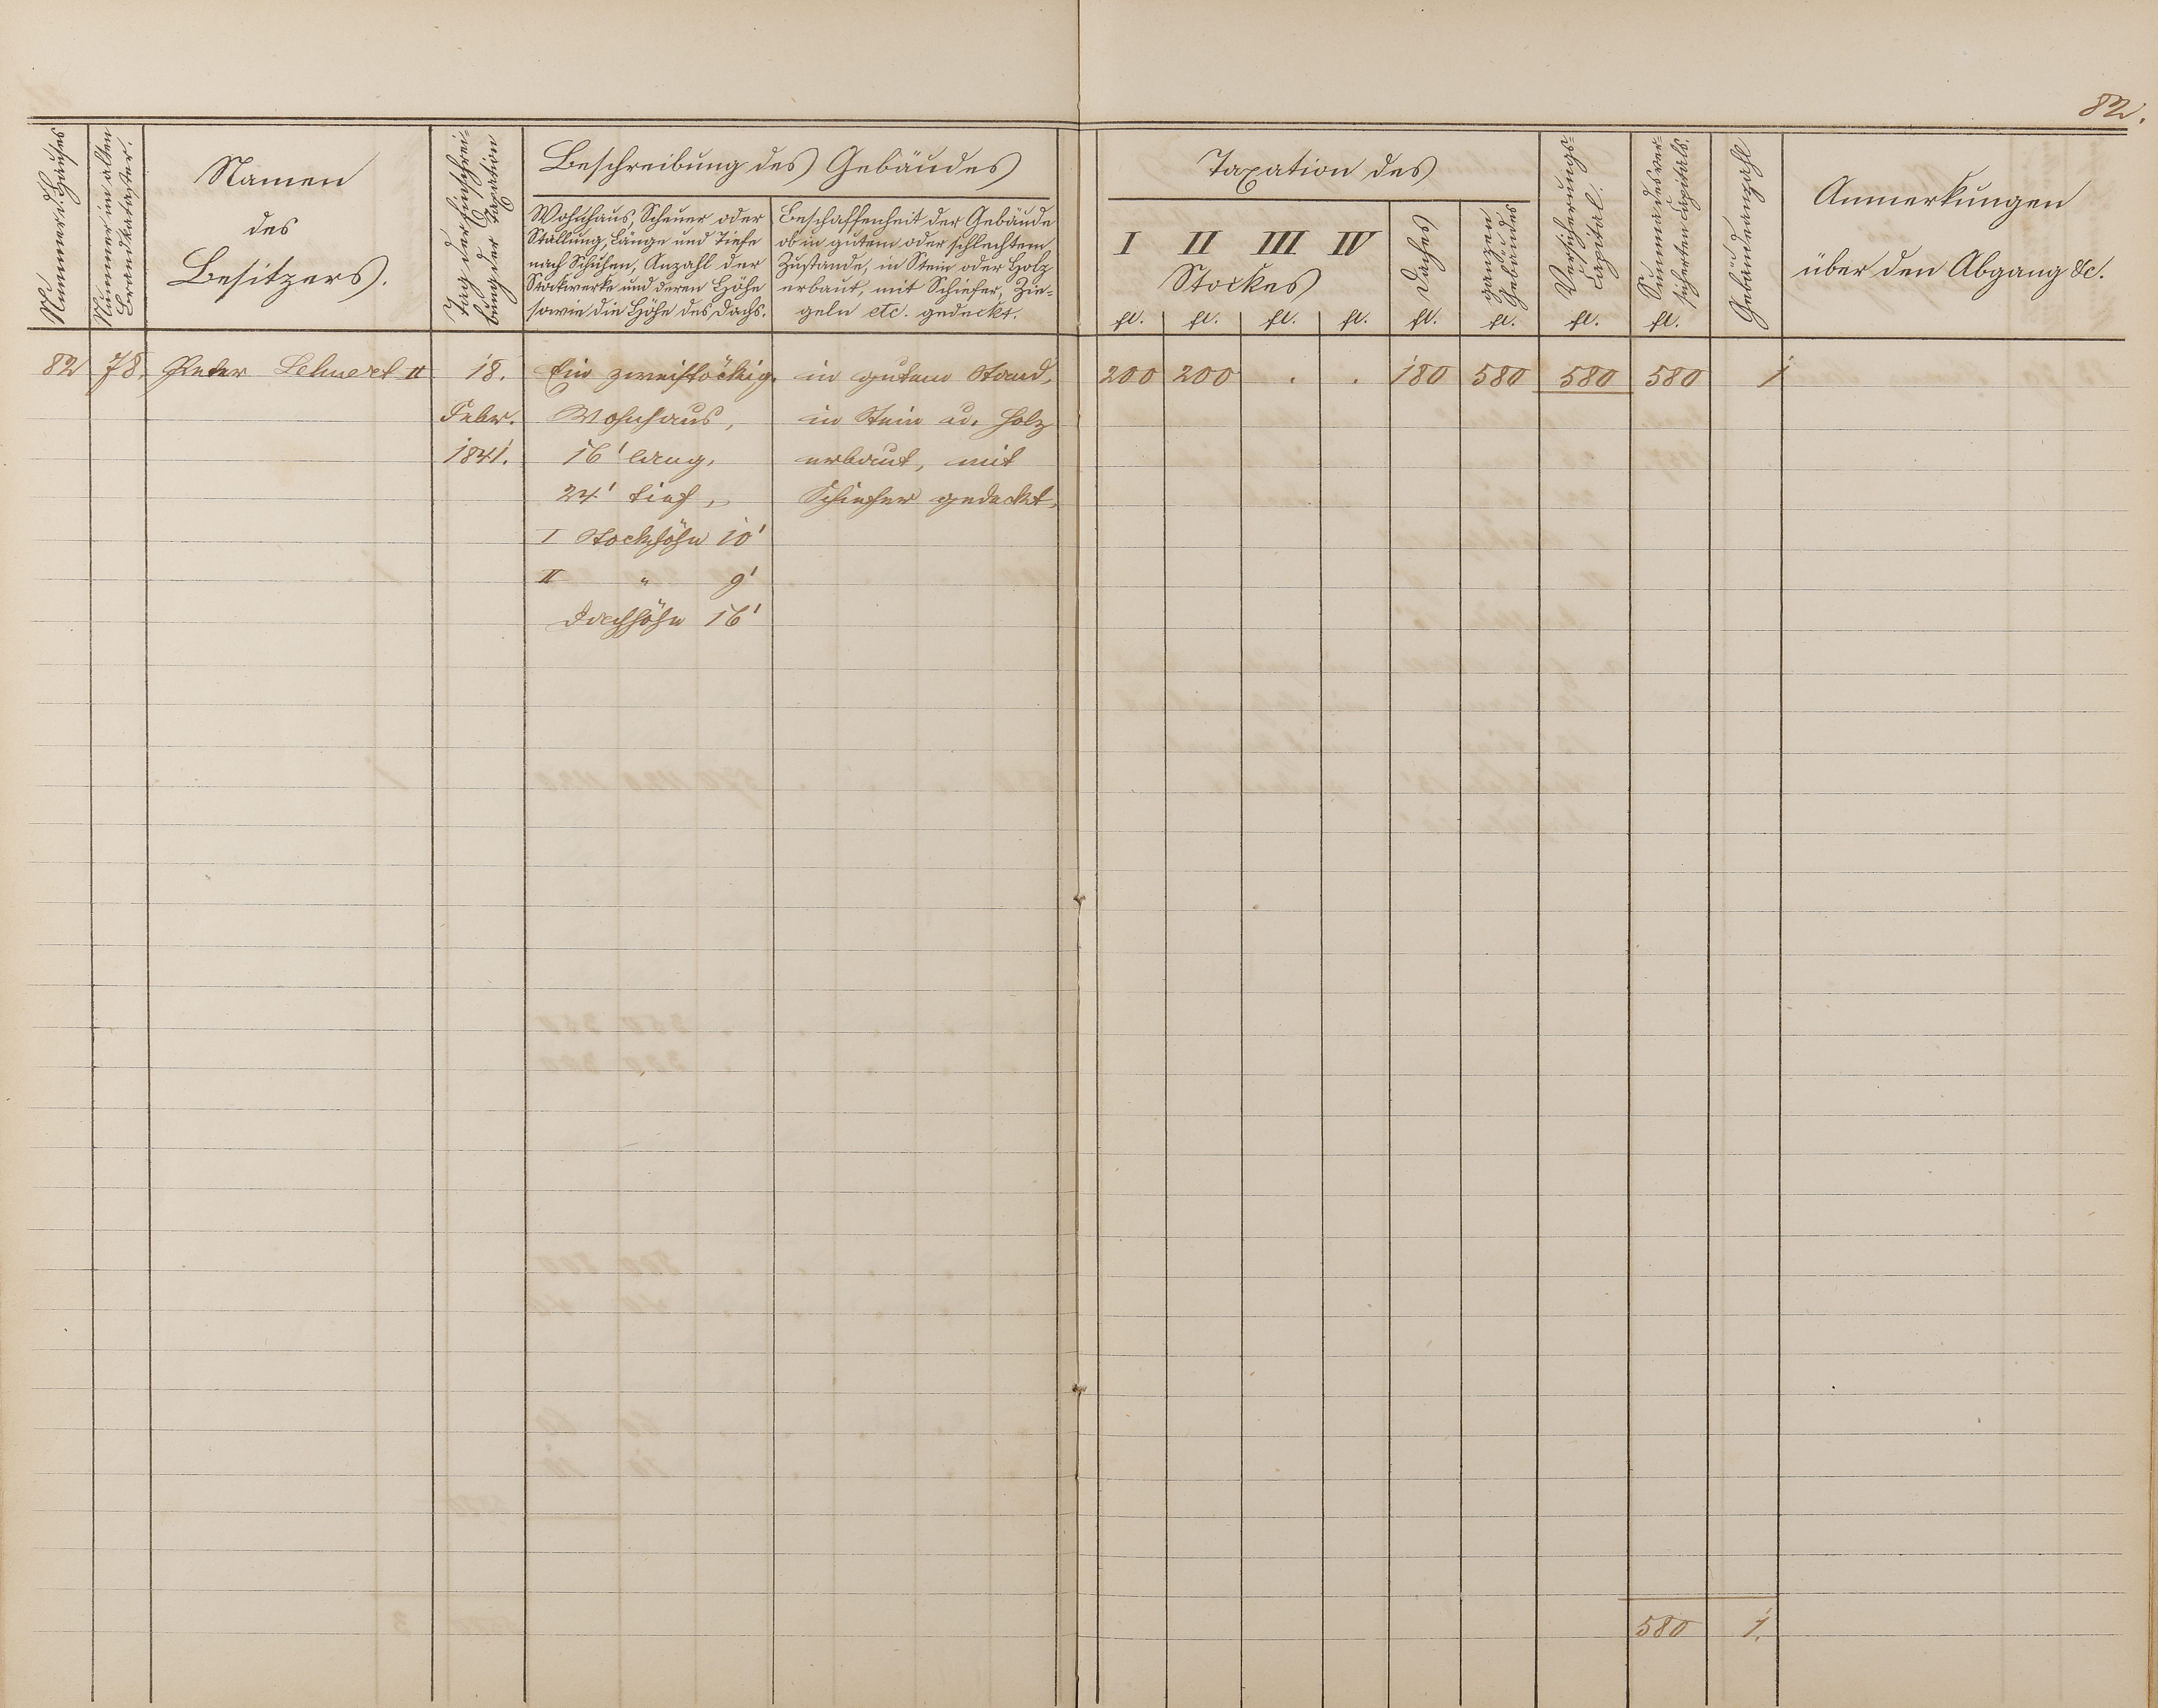 82.
Nummer d. Hauses
Nummer im alten
Brandkataster.
Namen
des
Besitzers.
Tag der Einschrei-
bung der Taxation
Beschreibung des Gebäudes
Wohnhaus, Scheuer oder
Stallung, Länge und Tiefe
nach Schuhen, Anzahl der
Stockwerke und deren Höhe
sowie die Höhe des Dachs.
Beschaffenheit der Gebäude
ob in gutem oder schlechtem
Zustande, in Stein oder Holz
erbaut, mit Schiefer, Zie-
geln etc. gedeckt.
Taxation des
I II III IV
Stockes
Daches
ganzen
Gebäudes
Versicherungs-
Capital.
Summa des ver-
sicherten Capitals.
Gebäudeanzahl
Anmerkungen
über den Abgang &c.
fl. fl. fl. fl. fl. fl. fl. fl.
82 78. Peter Lehnert II 18. Ein zweistöckig. in gutem Stand, 200 200 . . 180 580 580 580 1
Febr. Wohnhaus, in Stein u. Holz
1841. 16' lang, erbaut, mit
24' tief, Schiefer gedeckt,
I Stockhöhe 10'
II " 9'
Dachhöhe 16'
580 1.